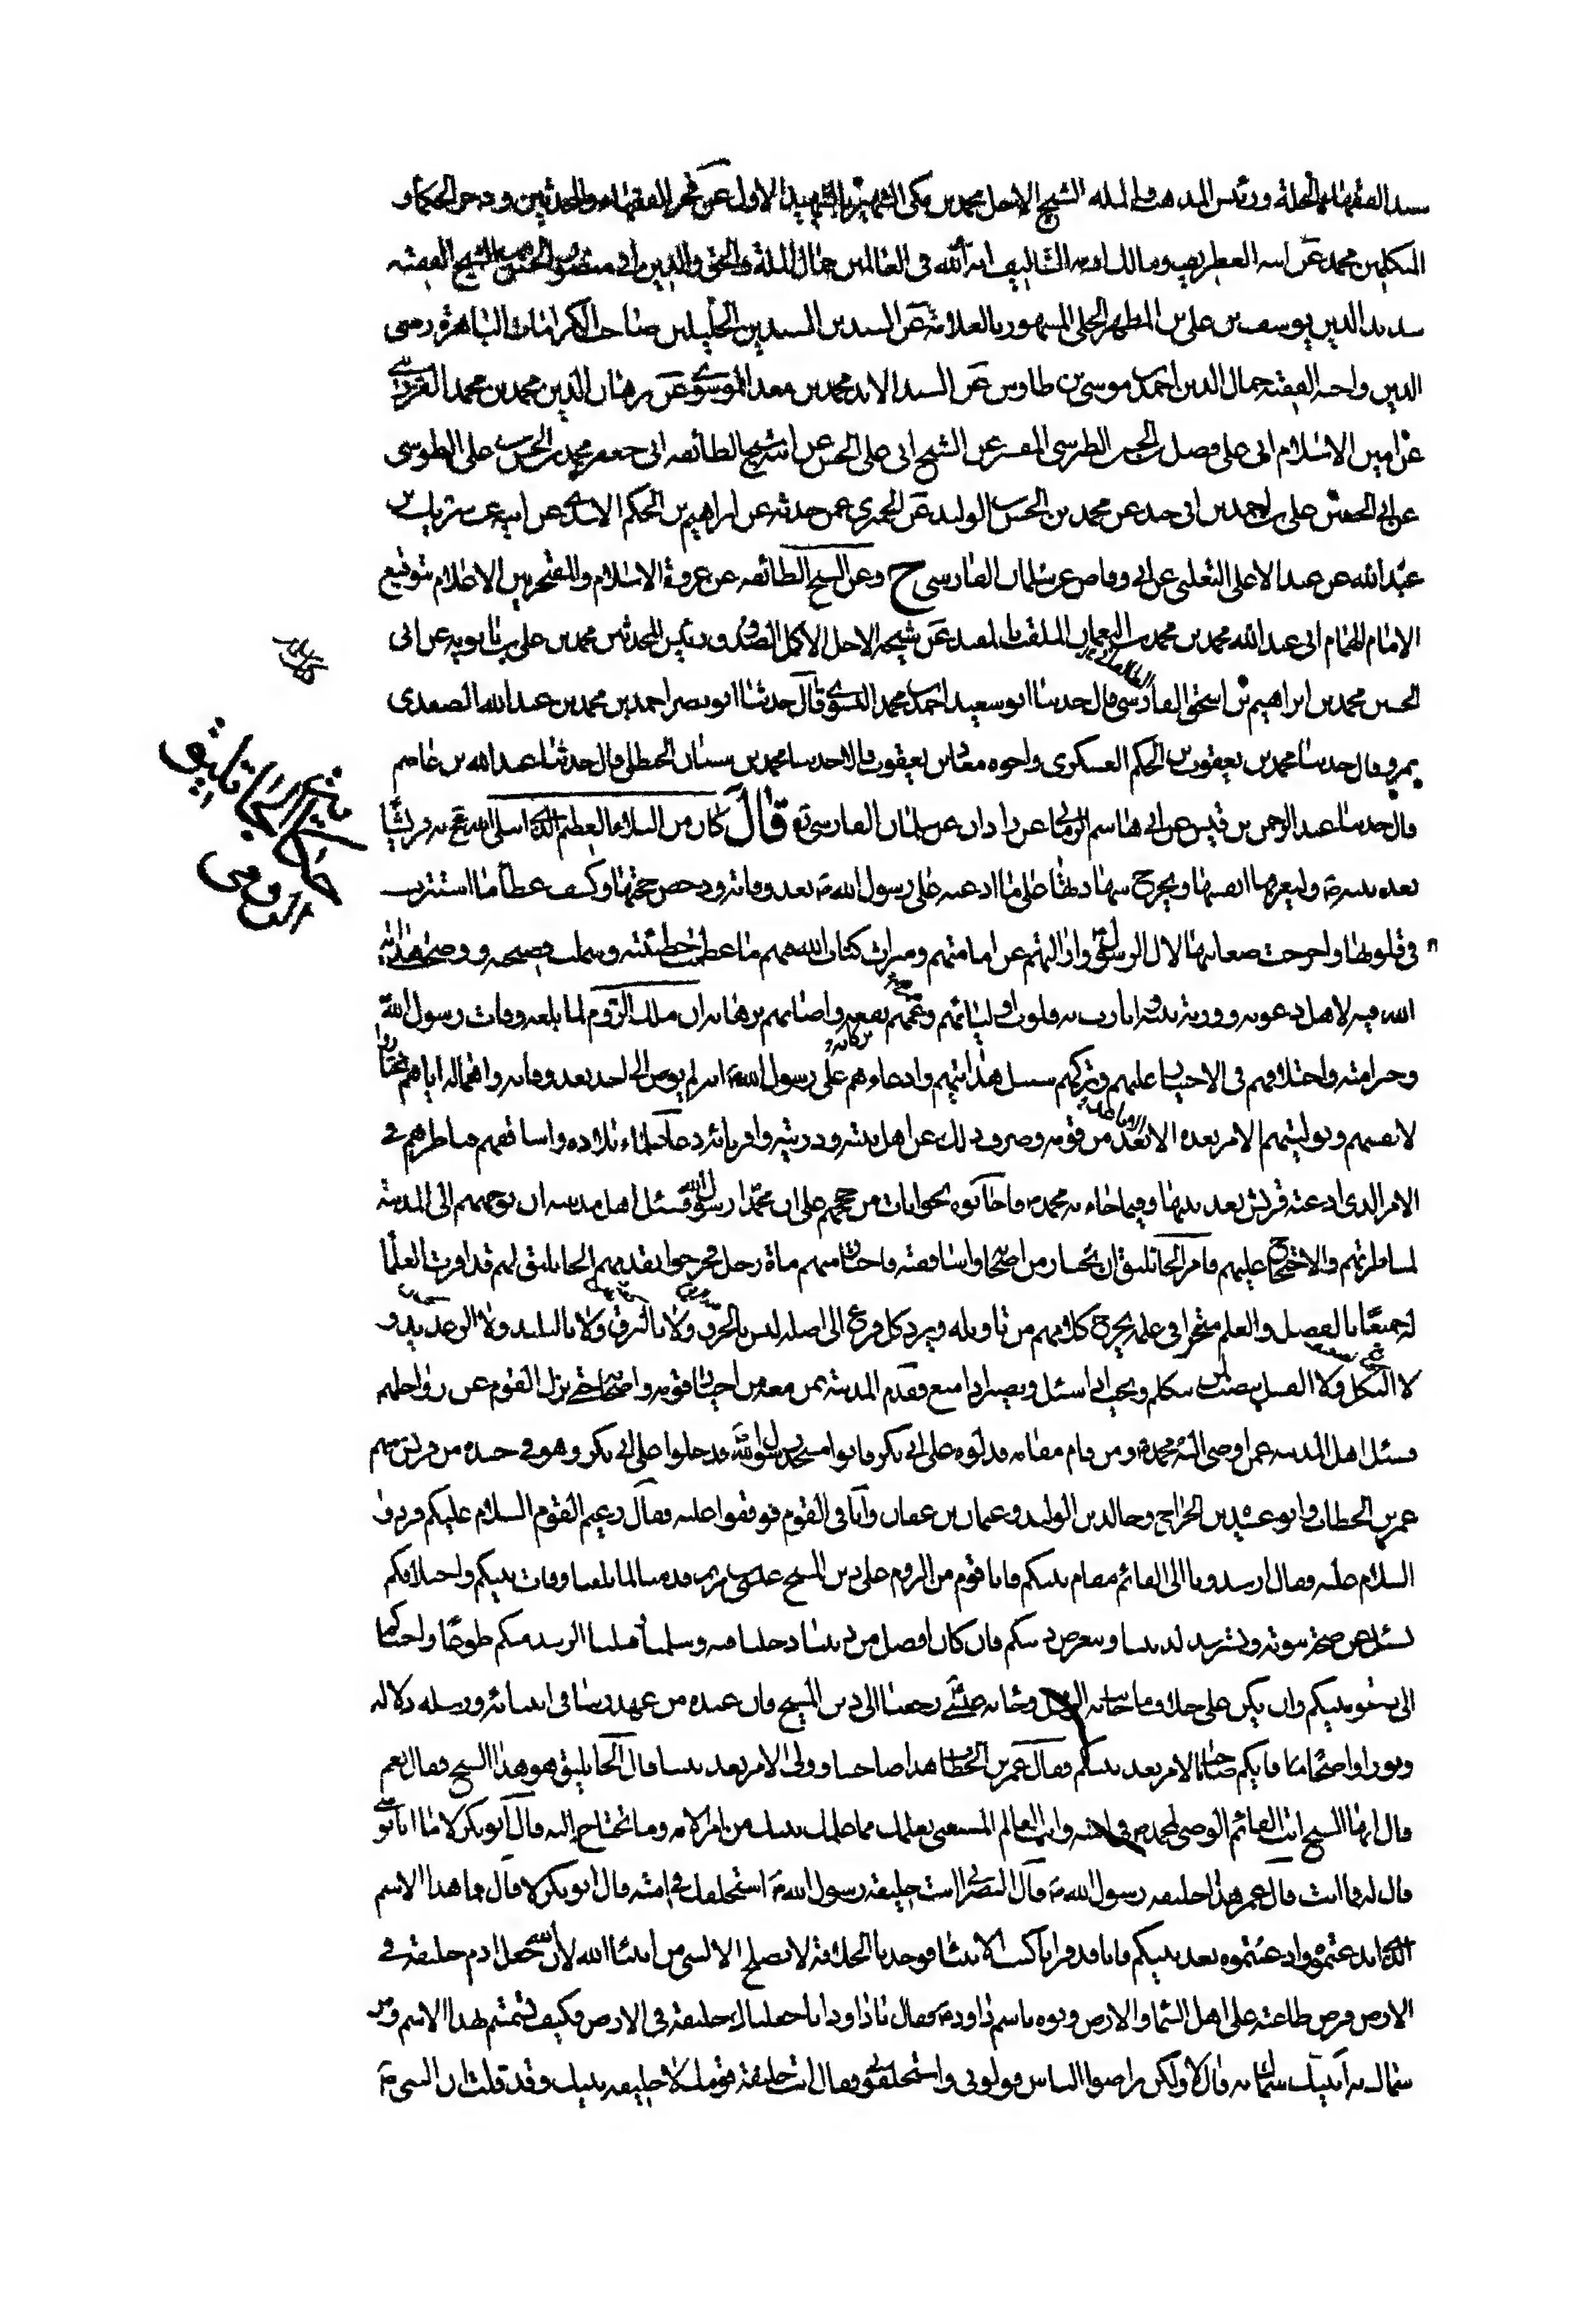 سيد الفقهاء الجلة ورئيس المذهب والملة الشيخ الاجل محمد بن مكي الشهير بالشهيد الاول عن فخر الفقهاء والمحدثين وحر الحكماء و
المتكلمين محمد عن ابيه ومالك ازمة التأليف اية الله في العالمين جمال الملة والحق والدين ابي منصور الحسن بن الشيخ الفقيه
سديد الدين يوسف بن علي بن المطهر الحلي المشهور بالعلامة عن السيدين السندين الجليلين صاحب الكرامات الباهرة رضي
الدين واخيه الفقيه جمال الدين احمد بن موسى بن طاوس عن السيد الايد محمد بن معد الموسوي عن برهان الدين محمد بن محمد القزويني
عن امين الاسلام ابي علي فضل بن الحسن الطبرسي المفسر عن الشيخ ابي علي الحسن عن ابيه شيخ الطائفة ابي جعفر محمد بن الحسن بن علي الطوسي
عن ابي الحسين علي بن احمد بن ابي جيد عن محمد بن الحسن بن الوليد عن الحميري عمن حدثه عن ابراهيم بن الحكم الاسدي عن ابيه عن شريك بن
عبد الله عن عبد الاعلى الثعلبي عن ابي وقاص عن سلمان الفارسي ح وعن الشيخ الطائفة عن عروة الاسلام والمفتخر بين الاعلام بتوقيع
الامام الهمام ابي عبد الله محمد بن محمد بن النعمان الملقب بالمفيد عن شيخه الاجل الاكمل الصدوق ورئيس المحدثين محمد بن علي بن بابويه عن ابي
الحسن محمد بن ابراهيم بن اسحق الفارسي قال حدثنا ابو سعيد احمد بن محمد النسوي قال حدثنا ابو نصر احمد بن محمد بن عبد الله الصغدي
بمرو قال حدثنا محمد بن يعقوب بن الحكم العسكري واخوه معاذ بن يعقوب قالا حدثنا محمد بن سنان الحنظلي قال حدثنا عبد الله بن عاصم
قال حدثنا عبد الرحمن بن قيس عن ابي هاشم الرماني عن زاذان عن سلمان الفارسي قال كان من البلاء العظيم الذي ابتلى الله عز وجل به قريشا
بعد نبيه وليعرفها انفسها ويجرح شهادتها على ما ادعته على رسول الله ص بعد وفاته ودحض حجتها وكشف غطاء ما استترت
في قلوبها واخرجت ضغاينها لال الرسول وازالتهم عن امامتهم وميراث كتاب الله فيهم ما عظمت خطيئته وشملت فضيحته ووضحت هداية
الله فيه لاهل دعوته وورثة نبيه انارت به قلوب اوليائهم وعمهم نفعه واصابهم برهانه ان ملك الروم لما بلغه وفات رسول الله
وخبر امته واختلافهم في الاختيار عليهم وتركهم سبيل هدايتهم وادعاءهم على رسول الله ص انه لم يوص الى احد بعد وفاته واهماله اياهم يختاروا
لانفسهم وتوليتهم الامر بعده الاباعد من قومه وصرف ذلك عن اهل بيته وذريته واقربائه دعا علماء بلاده واساقفهم فناظرهم في
الامر الذي ادعته قريش بعد نبيها وفيما جاء به محمد ص فاجابوه بجوابات من حججهم على ان محمدا رسول الله فسئل اهل مدينته ان يوجههم الى المدينة
لمناظرتهم والاحتجاج عليهم فامر الجاثليق ان يختار من اصحابه واساقفته فاختار منهم مأة رجل فخرجوا يقدمهم الجاثليق لهم قد اقرت العلماء
له جميعا بالفضل والعلم متبحرا في علمه يخرج الكلام من تاويله ويرد كل فرع الى اصله ليس بالخرق ولا بالنزق ولا بالبليد ولا الرعديد و
لا النكل ولا الفشل ينصت لمن يتكلم ويجيب اذا سئل ويصبر اذا منع فقدم المدينة بمن معه من اخيار قومه واصحابه حتى نزل القوم عن رواحلهم
فسئل اهل المدينة عمن اوصى اليه محمد ص ومن قام مقامه فدلوه على ابي بكر فاتوا مسجد رسول الله فدخلوا على ابي بكر وهو في حشدة من قريش فيهم
عمر بن الخطاب وابو عبيدة بن الجراح وخالد بن الوليد وعثمان بن عفان وانا في القوم فوقفوا عليه فقال زعيم القوم السلام عليكم فردوا
السلام عليه فقال ارشدونا الى القائم مقام نبيكم فانا قوم من الروم على دين المسيح عيسى بن مريم قدمنا لما بلغنا وفات نبيكم واختلافكم
نسئل عن صحة نبوته ونسترشد لديننا ونتعرض دينكم فان كان افضل من ديننا دخلنا فيه وسلمنا وقبلنا الرشد منكم طوعا واجبناكم
الى دعوة نبيكم وان يكن على خلاف ما جاءت به الرسل وجاء به عيسى رجعنا الى دين المسيح فان عنده من عهد ربنا في انبيائه ورسله دلالة
ونورا واضحا فايكم صاحب الامر بعد نبيكم فقال عمر بن الخطاب هذا صاحبنا وولي الامر بعد نبينا قال الجاثليق هو هذا الشيخ فقال نعم
قال ايها الشيخ انت القائم الوصي لمحمد ص في امته وانت العالم المستغني بعلمك مما علمك نبيك من امر الامة وما تحتاج اليه قال ابو بكر لا ما انا بوصي
قال له فما انت قال عمر هذا خليفة رسول الله ص قال النصراني انت خليفة رسول الله ص استخلفك في امته قال ابو بكر لا قال فما هذا الاسم
الذي ابتدعتموه وادعيتموه بعد نبيكم فانا قد قرأنا كتب الانبياء فوجدنا الخلافة لا تصلح الا لنبي من انبياء الله لان الله جعل ادم خليفة في
الارض فرض طاعته على اهل السماء والارض ونوه باسم داود ص فقال يا داود انا جعلناك خليفة في الارض فكيف تسميتم بهذا الاسم ومن
سماك به انبيك سماك به قال لا ولكن تراضوا الناس فولوني واستخلفوني فقال انت خليفة قومك لا خليفة نبيك وقد قلت ان النبي ص
حكاية الجاثليق
الرومي